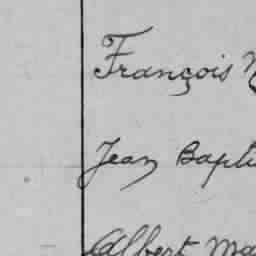 François
Jean Bapti
Albert Ma